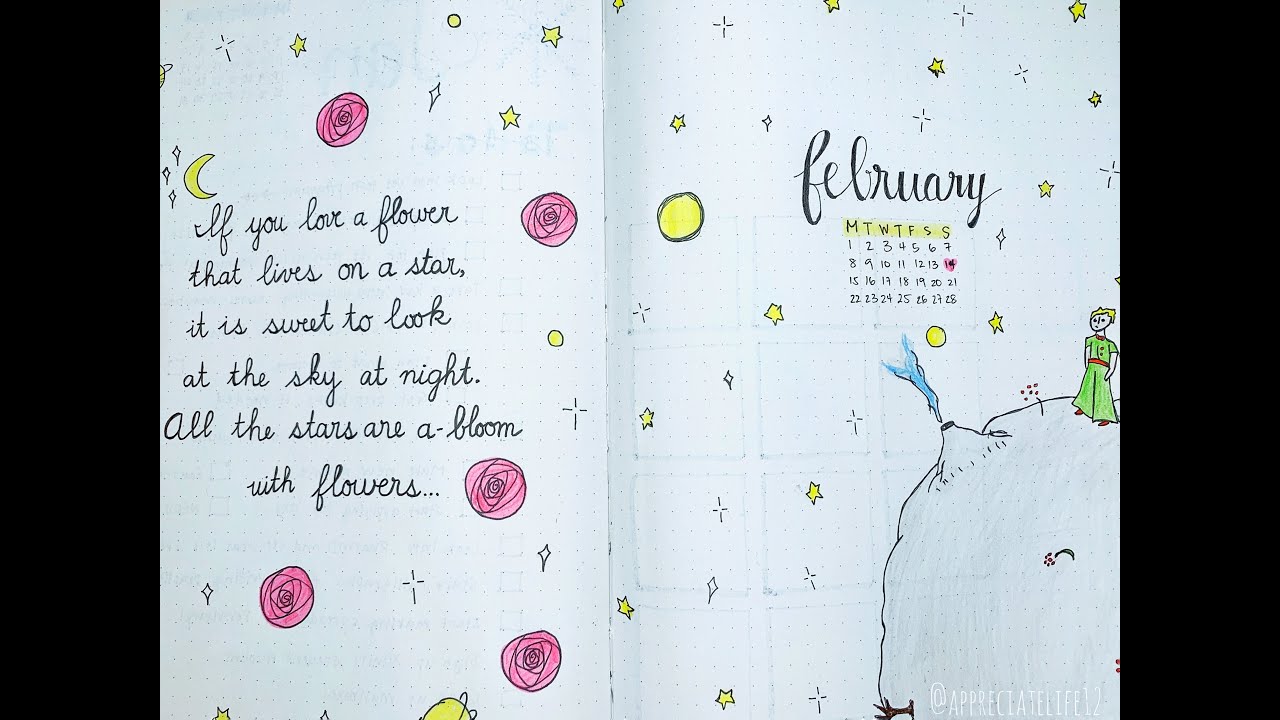 If you love a flower
that lives on a star,
it is sweet to look
at the sky at night.
All the stars are a-bloom
with flowers...
february
M T W T F S S
1 2 3 4 5 6 7
8 9 10 11 12 13 14
15 16 17 18 19 20 21
22 23 24 25 26 27 28
@APPRECIATELIFE12